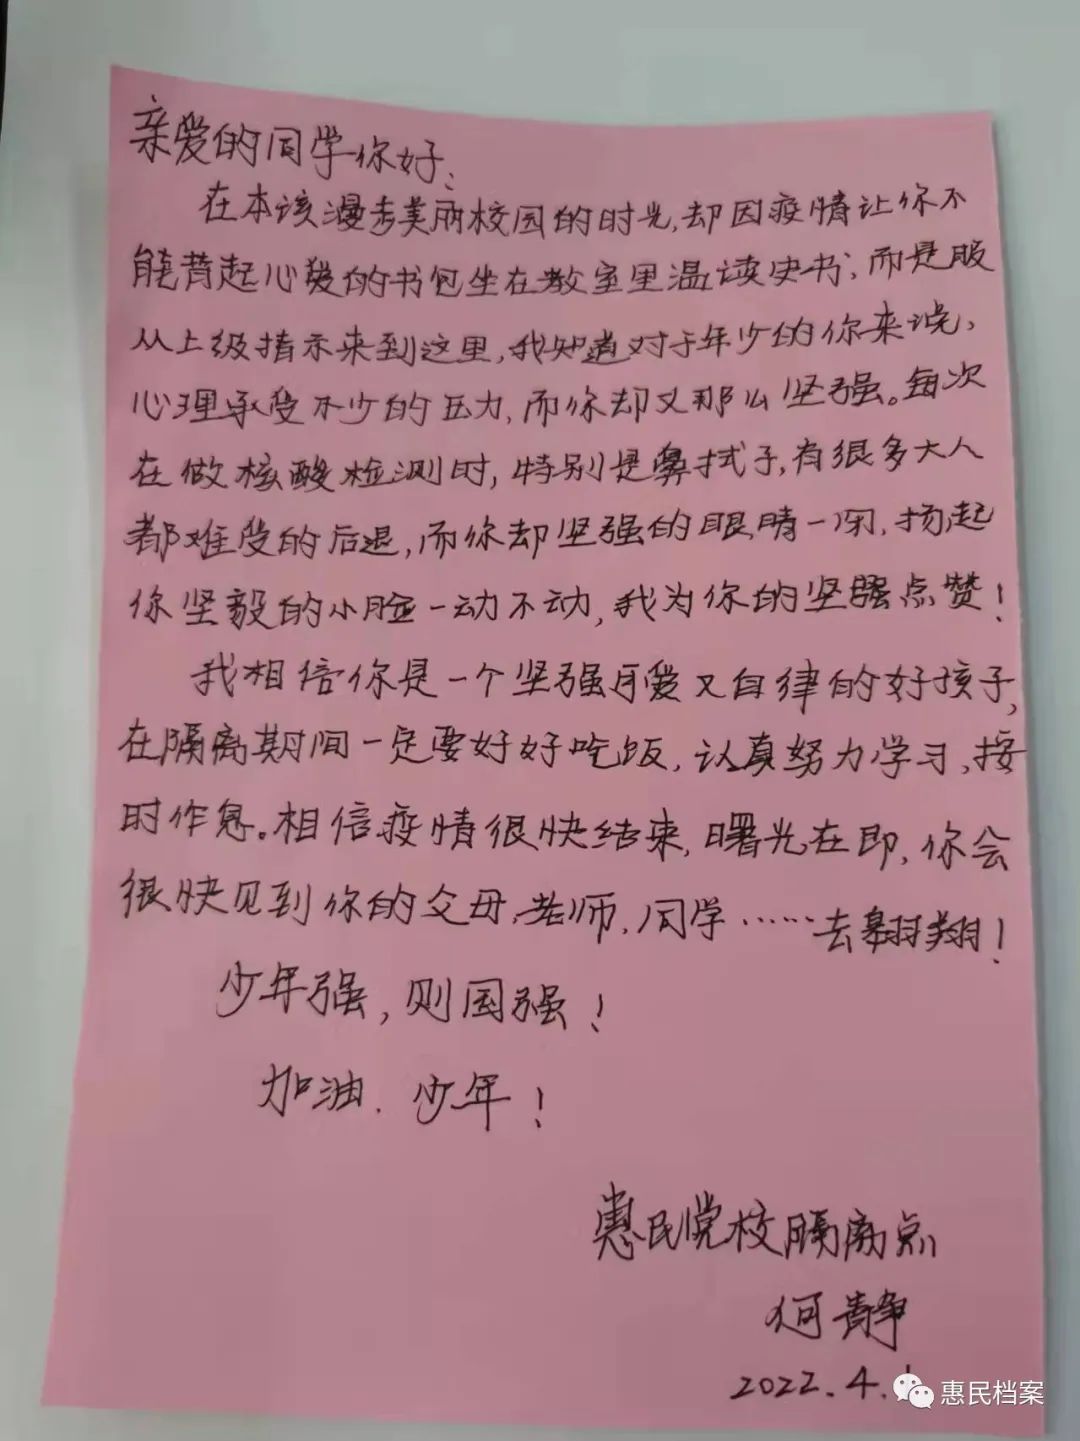 亲爱的同学你好、
在本该漫步美丽校园的时光,却因疫情让你不
能背起心爱的书包坐在教室里温读史书,而是服
从上级指示来到这里,我知道对于年少的你来说,
心理承受不少的压力,而你却又那么坚强。每次
在做核酸检测时,特别是鼻拭子,有很多大人
都难受的后退,而你却坚强的眼睛一闭,扬起
你坚毅的小脸一动不动,我为你的坚强点赞!
我相信你是一个坚强可爱又自律的好孩子,
在隔离期间一定要好好吃饭,认真努力学习,按
时作息。相信疫情很快结束,曙光在即,你会
很快见到你的父母,老师,同学……去翱翔!
少年强,则国强!
加油,少年!
惠民党校隔离点
何静
2022.4.
惠民档案